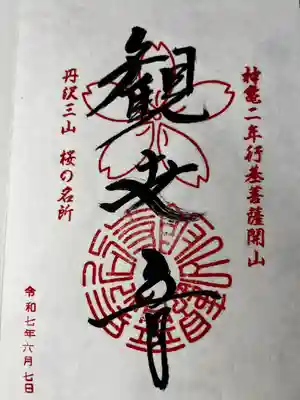 神亀二年行基菩薩開山
観世音
丹沢三山 桜の名所
令和七年六月七日